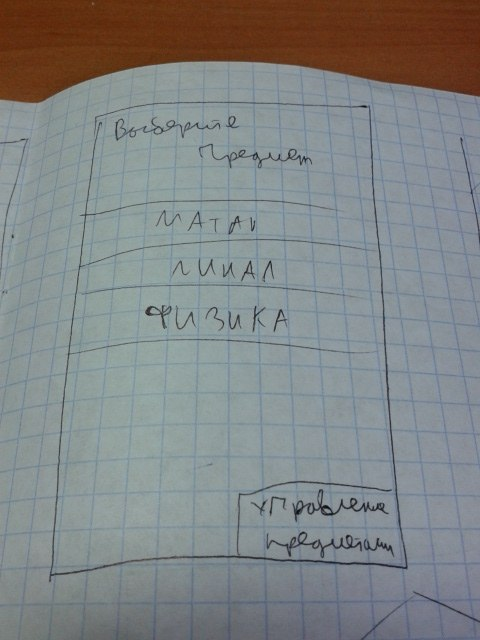 Выберите
Предмет
МАТАН
ЛИНАЛ
ФИЗИКА
Управление
предметами